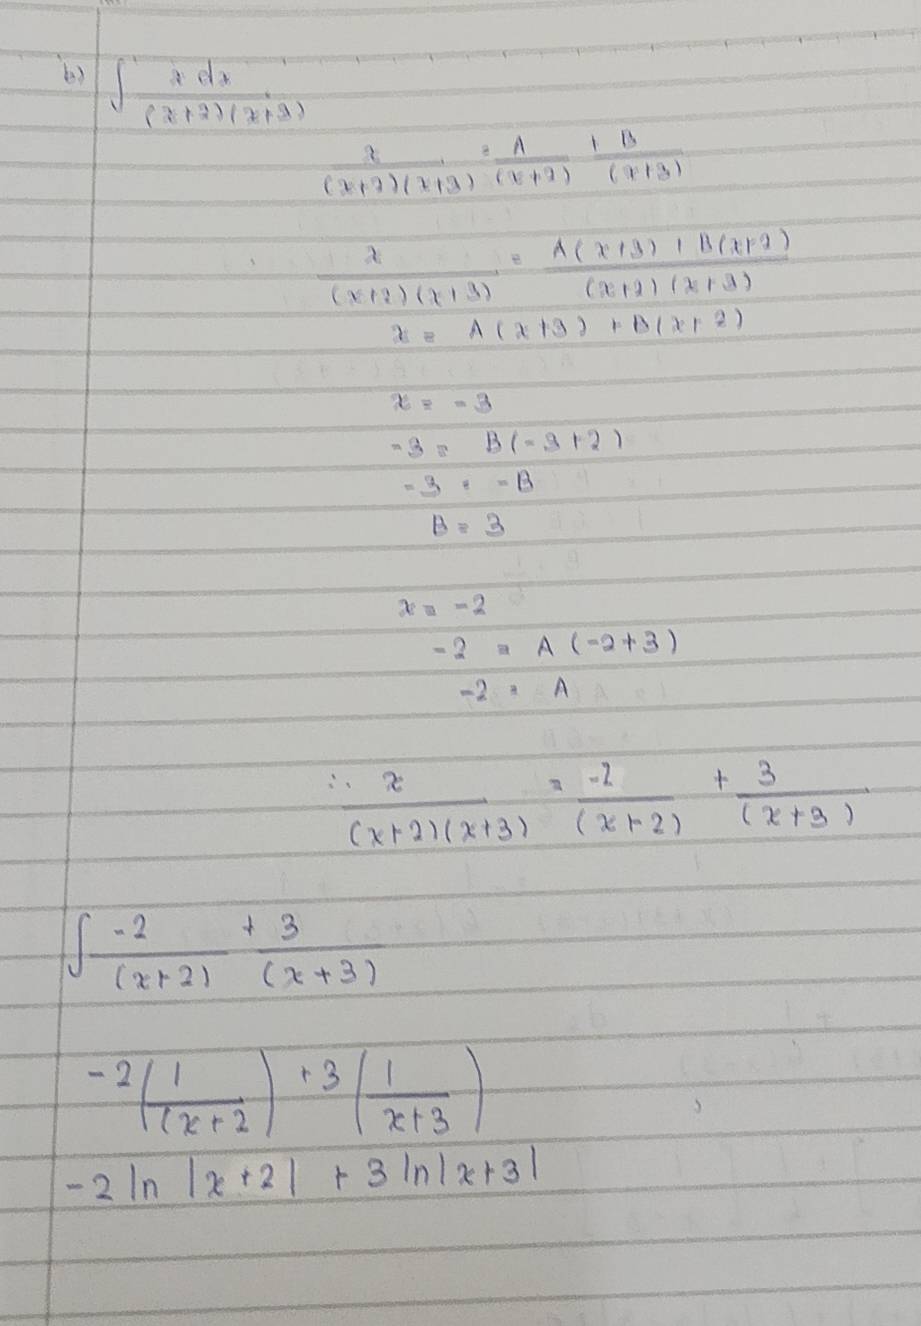 b) ∫ x dx / (x+2)(x+3)
x / (x+2)(x+3) = A / (x+2) + B / (x+3)
x / (x+2)(x+3) = A(x+3) + B(x+2) / (x+2)(x+3)
x = A(x+3) + B(x+2)
x = -3
-3 = B(-3+2)
-3 = -B
B = 3
x = -2
-2 = A(-2+3)
-2 = A
∴ x / (x+2)(x+3) = -2 / (x+2) + 3 / (x+3)
∫ -2 / (x+2) + 3 / (x+3)
-2 (1 / (x+2) + 3 (1 / x+3)
-2 ln |x+2| + 3 ln|x+3|